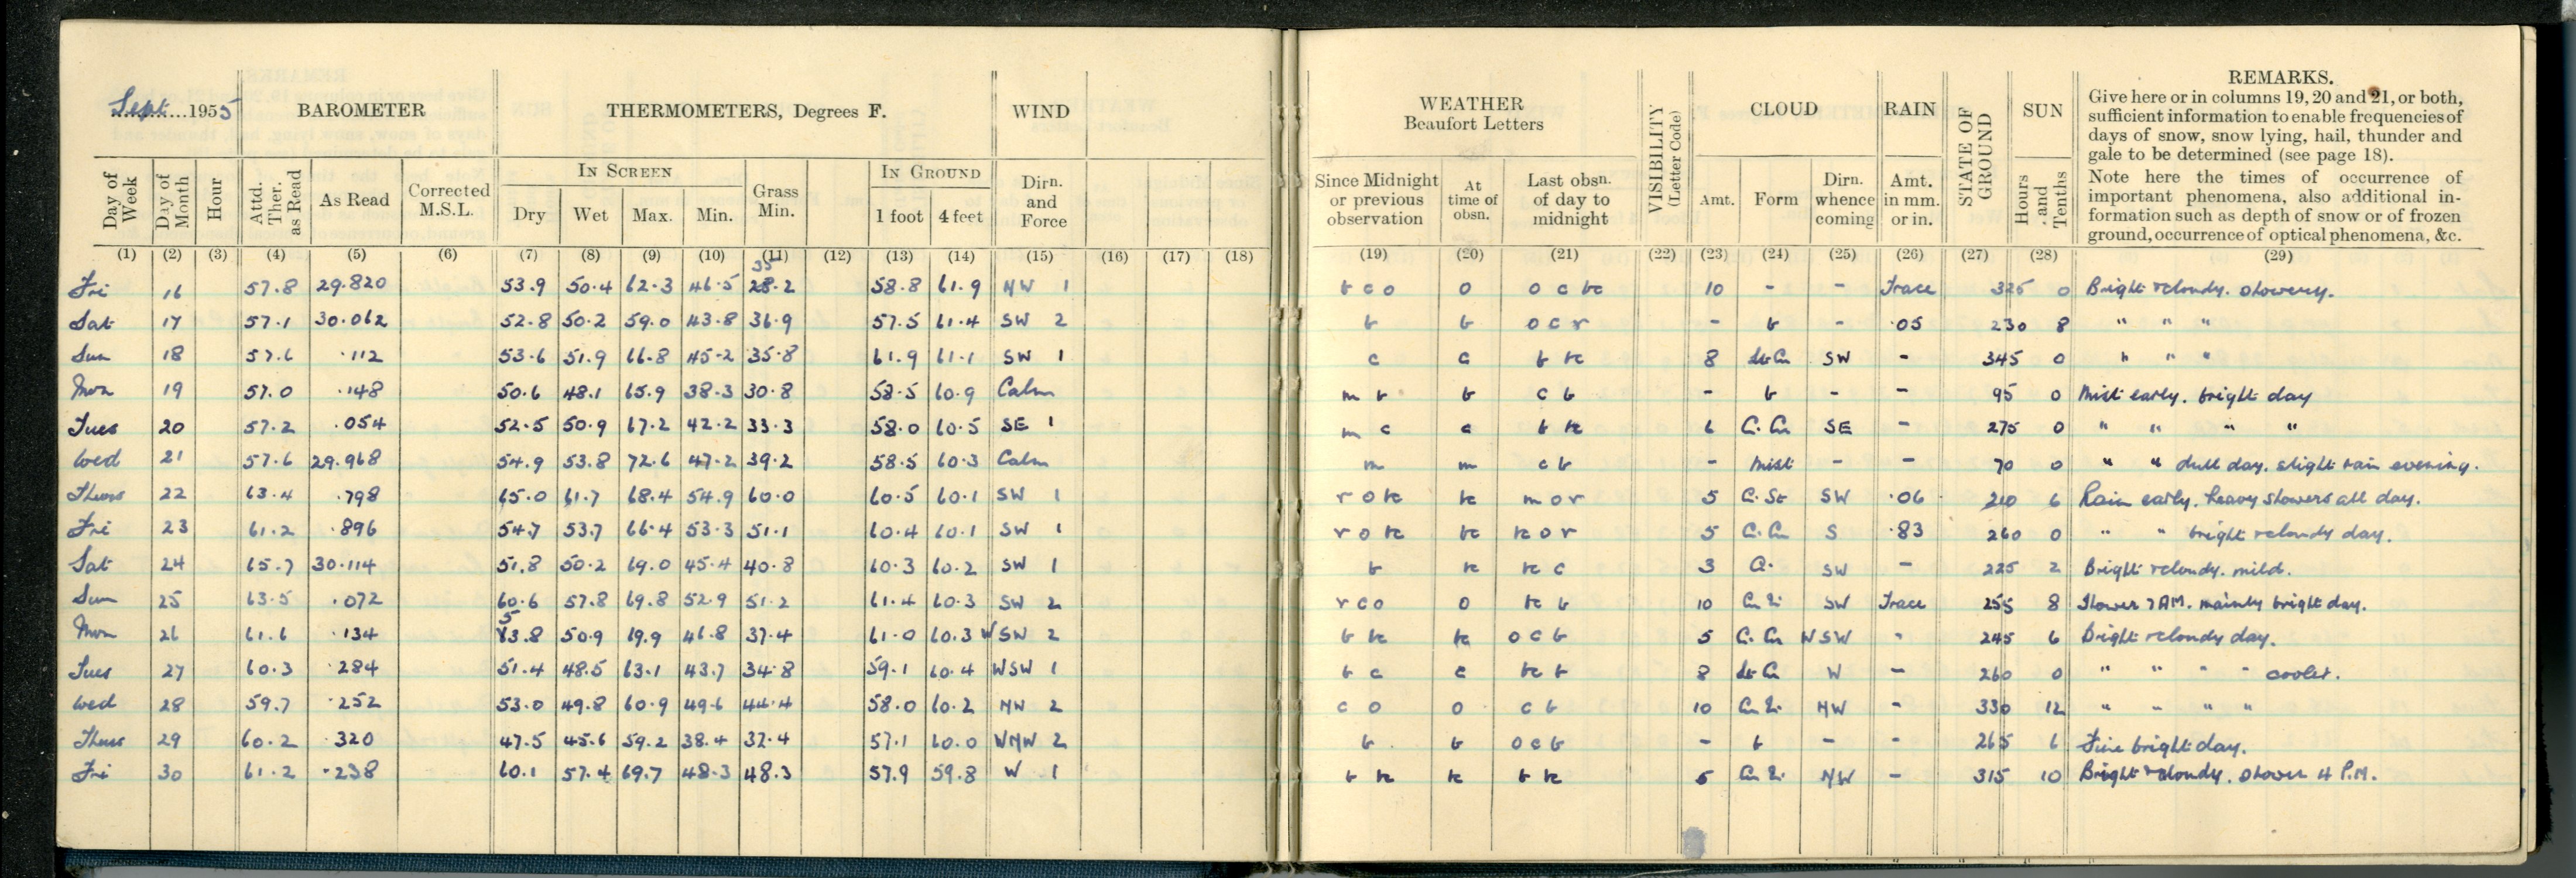 Sept. 1955 BAROMETER THERMOMETERS, Degrees F. WIND
Day of Week Day of Month Hour Attd. Ther. as Read As Read Corrected M.S.L. IN SCREEN Dry Wet Max. Min. Grass Min. IN GROUND 1 foot 4 feet Dirn. and Force
WEATHER Beaufort Letters VISIBILITY (Letter Code) CLOUD RAIN STATE OF GROUND SUN REMARKS.
Since Midnight or previous observation At time of obsn. Last obsn. of day to midnight Amt. Form Dirn. whence coming Amt. in mm. or in. Hours and Tenths
Give here or in columns 19, 20 and 21, or both,
sufficient information to enable frequencies of
days of snow, snow lying, hail, thunder and
gale to be determined (see page 18).
Note here the times of occurrence of
important phenomena, also additional in-
formation such as depth of snow or of frozen
ground, occurrence of optical phenomena, &c.
(1) (2) (3) (4) (5) (6) (7) (8) (9) (10) (11) (12) (13) (14) (15) (16) (17) (18) (19) (20) (21) (22) (23) (24) (25) (26) (27) (28) (29)
35
Fri 16 57.8 29.820 53.9 50.4 62.3 46.5 28.2 58.8 61.9 NW 1 b c o o o c bc 10 - - Trace 325 0 Bright & cloudy. showery.
Sat 17 57.1 30.062 52.8 50.2 59.0 43.8 36.9 57.5 61.4 SW 2 b b o c r - b - .05 230 8 " " "
Sun 18 57.6 .112 53.6 51.9 66.8 45.2 35.8 61.9 61.1 SW 1 c c b bc 8 St Cu SW - 345 0 " " "
Mon 19 57.0 .148 50.6 48.1 65.9 38.3 30.8 58.5 60.9 Calm m b b c b - b - - 95 0 Mist early. bright day
Tues 20 57.2 .054 52.5 50.9 67.2 42.2 33.3 58.0 60.5 SE 1 m c c b bc 6 C. Cu SE - 275 0 " " " "
Wed 21 57.6 29.968 54.9 53.8 72.6 47.2 39.2 58.5 60.3 Calm m m c b - Mist - - 70 0 " " dull day. slight rain evening.
Thurs 22 63.4 .798 65.0 61.7 68.4 54.9 60.0 60.5 60.1 SW 1 r o bc bc m o r 5 C. St SW .06 210 6 Rain early. heavy showers all day.
Fri 23 61.2 .896 54.7 53.7 66.4 53.3 51.1 60.4 60.1 SW 1 r o bc bc bc o r 5 C. Cu S .83 260 0 " " bright & cloudy day.
Sat 24 65.7 30.114 51.8 50.2 69.0 45.4 40.8 60.3 60.2 SW 1 b bc bc c 3 Ci. SW - 225 2 Bright & cloudy. mild.
Sun 25 63.5 .072 60.6 57.8 69.8 52.9 51.2 61.4 60.3 SW 2 r c o o bc b 10 SW Trace 255 8 Shower 7 AM. mainly bright day.
5
Mon 26 61.6 .134 3.8 50.9 69.9 46.8 37.4 61.0 60.3 WSW 2 b bc bc o c b 5 C. Cu WSW - 245 6 Bright & cloudy day.
Tues 27 60.3 .284 51.4 48.5 63.1 43.7 34.8 59.1 60.4 WSW 1 b c c bc b 8 St Cu W - 260 0 " " " " cooler.
Wed 28 59.7 .252 53.0 49.8 60.9 49.6 44.4 58.0 60.2 NW 2 c o o c b 10 NW - 330 12 " " " "
Thurs 29 60.2 .320 47.5 45.6 59.2 38.4 32.4 57.1 60.0 WNW 2 b b o c b - b - - 265 6 Fine bright day.
Fri 30 61.2 .238 60.1 57.4 69.7 48.3 48.3 57.9 59.8 W 1 b bc bc b bc NW - 315 10 Bright & cloudy. shower 4 P.M.